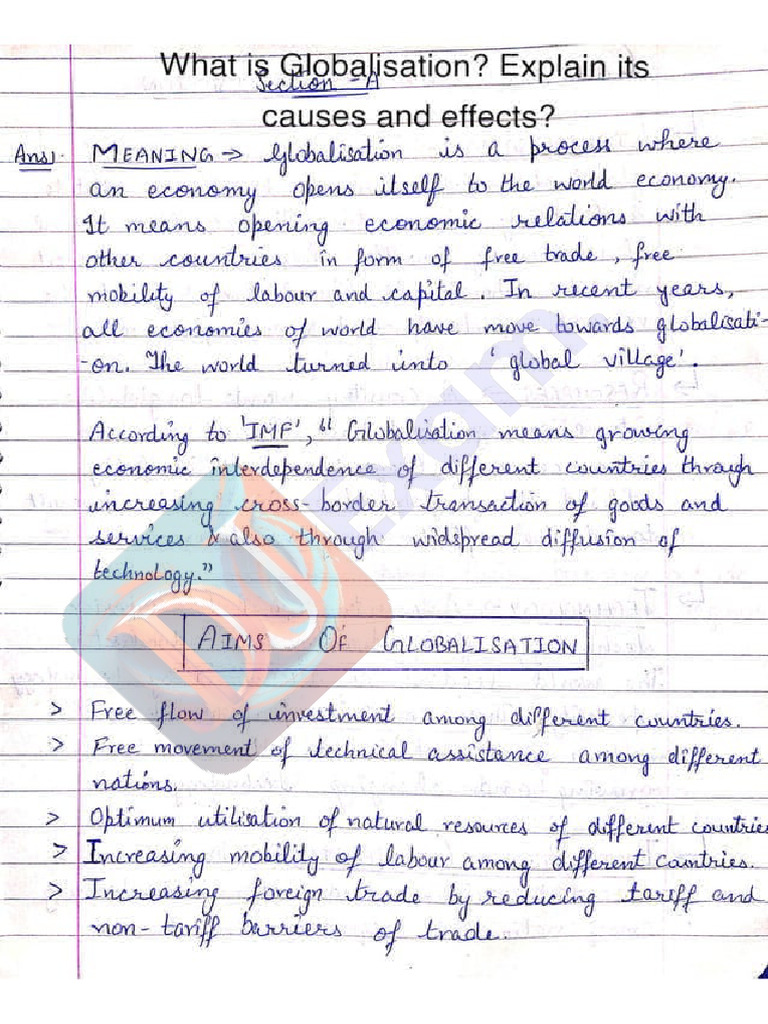 What is Globalisation? Explain its
Section - A
causes and effects?
Ans). MEANING → Globalisation is a process where
an economy opens itself to the world economy.
It means opening economic relations with
other countries in form of free trade, free
mobility of labour and capital. In recent years,
all economies of world have move towards globalisati-
-on. The world turned into 'global village'.
According to 'IMF', "Globalisation means growing
economic interdependence of different countries through
increasing cross-border transaction of goods and
services & also through widspread diffusion of
technology."
AIMS OF GLOBALISATION
> Free flow of investment among different countries.
> Free movement of technical assistance among different
nations.
> Optimum utilisation of natural resources of different countries
> Increasing mobility of labour among different countries.
> Increasing foreign trade by reducing tariff and
non-tariff barriers of trade.
DU Exam.